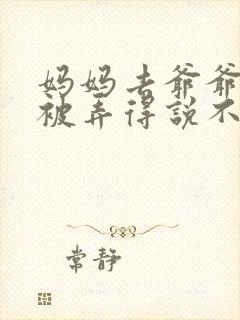 妈妈去爷爷
被弄得说不
常静